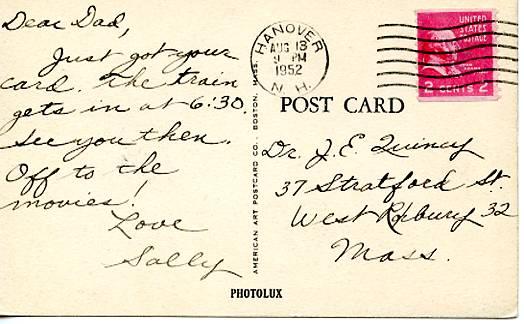 Dear Dad,
Just got your
card. The train
gets in at 6:30.
See you then.
Off to the
movies!
Love
Sally
AMERICAN ART POSTCARD CO., BOSTON, MASS.
HANOVER
AUG 13
9 PM
1952
N. H.
UNITED
STATES
POSTAGE
2 CENTS 2
POST CARD
Dr. J. E. Quincy
37 Stratford St.
West Roxbury 32
Mass.
PHOTOLUX